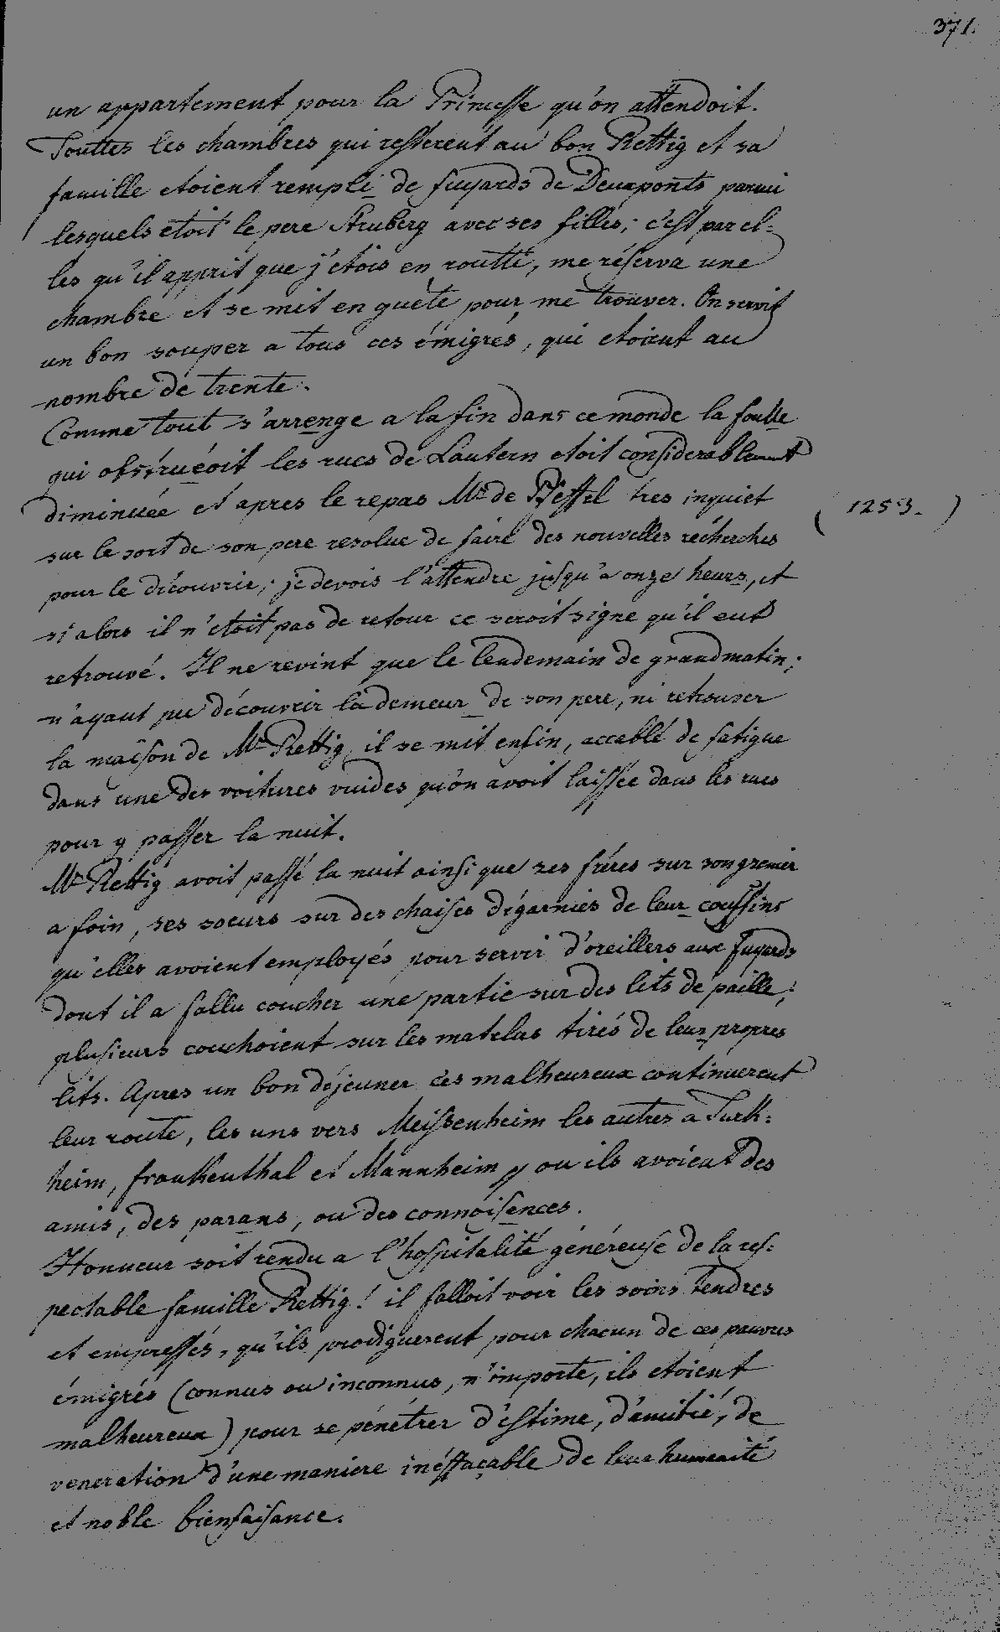 371.
un appartement pour la Princesse qu'on attendoit.
Touttes les chambres qui resterent au bon Rettig et sa
famille etoient rempli de fuyards de Deuxponts parmi
lesquels etoit le pere Struberg avec ses filles; c'est par el-
les qu'il apprit que j'étois en routte, me réserva une
chambre et se mit en quéte pour me trouver. On servit
un bon souper a tous ces émigrés, qui etoient au
nombre de trente.
Comme tout s'arrenge a la fin dans ce monde la foulle
qui obstruéoit les rues de Lautern etoit considerablement
diminuée et apres le repas Mr de Pfeffel tres inquiet
( 1253. )
sur le sort de son pere resolue de faire des nouvelles récherches
pour le découvrir; je devois l'attendre jusqu'a onze heurs, et
si alors il n'etoit pas de retour ce seroit signe qu'il eut
retrouvé. Il ne revint que le lendemain de grand matin;
n'ayant pu découvrir la demeur de son pere, ni retrouver
la maison de Mr Rettig, il se mit enfin, accablé de fatigue
dans une des voitures vuides qu'on avoit laissée dans les rues
pour y passer la nuit.
Mr Rettig avoit passé la nuit ainsi que ses fréres sur son grenier
a foin, ses soeurs sur des chaises dégarnies de leur coussins
qu'elles avoient employés pour servir d'oreillers aux fuyards
dont il a fallu coucher une partie sur des lits de paille;
plusieurs couchoient sur les matelas tirés de leur propres
lits. Apres un bon déjeuner ces malheureux continuerent
leur route, les uns vers Meissenheim les autres a Turk-
heim, frankenthal et Mannheim ou ils avoient des
amis, des parans, ou des connoisences.
Honneur soit rendu a l'hospitalité généreuse de la res-
pectable famille Rettig! il falloit voir les soins tendres
et empressés, qu'ils prodiguerent pour chacun de ces pauvres
émigrés (connus ou inconnus, n'importe, ils etoient
malheureux) pour se pénétrer d'estime, d'amitié, de
veneration d'une maniere inéffaçable de leur humanité
et noble bienfaisance.